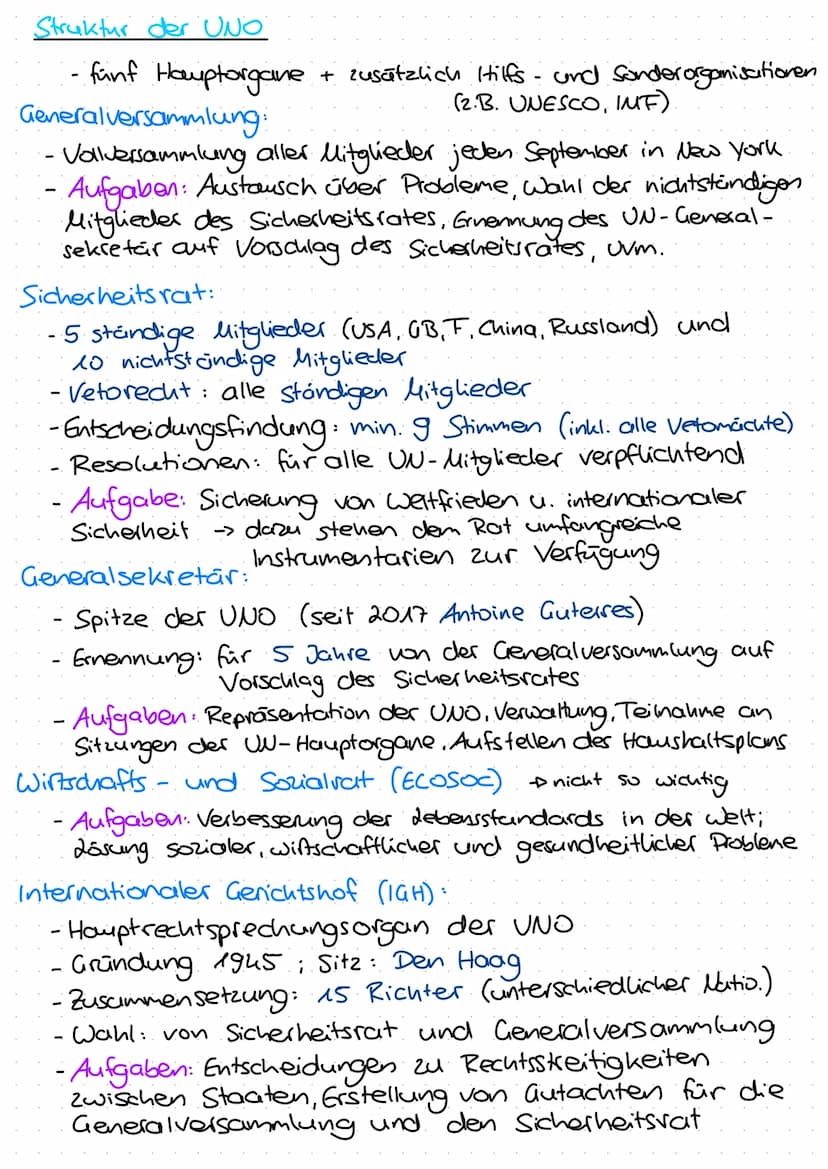 Struktur der UNO
- fünf Hauptorgane + zusätzlich Hilfs- und Sonderorganisationen
(z.B. UNESCO, IMF)
Generalversammlung:
- Vollversammlung aller Mitglieder jeden September in New York
- Aufgaben: Austausch über Probleme, Wahl der nichtständigen
Mitglieder des Sicherheitsrates, Ernennung des UN-General-
sekretär auf Vorschlag des Sicherheitsrates, uvm.
Sicherheitsrat:
- 5 ständige Mitglieder (USA, GB, F, China, Russland) und
10 nichtständige Mitglieder
- Vetorecht: alle ständigen Mitglieder
- Entscheidungsfindung: min. 9 Stimmen (inkl. alle Vetomächte)
- Resolutionen: für alle UN-Mitglieder verpflichtend
- Aufgabe: Sicherung von Weltfrieden u. internationaler
Sicherheit → dazu stehen dem Rat umfangreiche
Instrumentarien zur Verfügung
Generalsekretär:
- Spitze der UNO (seit 2017 Antoine Guterres)
- Ernennung: für 5 Jahre von der Generalversammlung auf
Vorschlag des Sicherheitsrates
- Aufgaben: Repräsentation der UNO, Verwaltung, Teinahme an
Sitzungen der UN-Hauptorgane, Aufstellen des Haushaltsplans
Wirtschafts- und Sozialrat (ECOSOC) → nicht so wichtig
- Aufgaben: Verbesserung der Lebensstandards in der Welt;
Lösung sozialer, wirtschaftlicher und gesundheitlicher Probleme
Internationaler Gerichtshof (IGH):
- Hauptrechtsprechungsorgan der UNO
- Gründung 1945; Sitz: Den Haag
- Zusammensetzung: 15 Richter (unterschiedlicher Natio.)
- Wahl: von Sicherheitsrat und Generalversammlung
- Aufgaben: Entscheidungen zu Rechtsstreitigkeiten
zwischen Staaten, Erstellung von Gutachten für die
Generalversammlung und den Sicherheitsrat